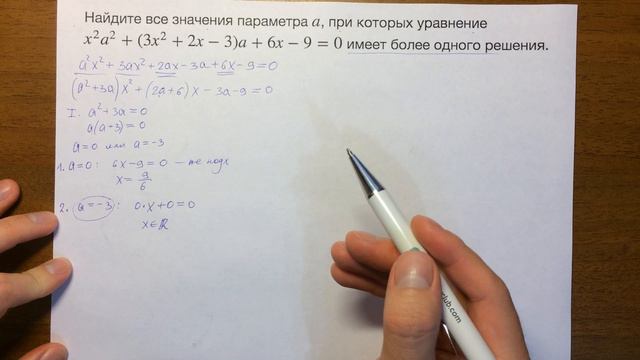 Найдите все значения параметра a, при которых уравнение
x²a² + (3x² + 2x − 3)a + 6x − 9 = 0 имеет более одного решения.
a²x² + 3ax² + 2ax − 3a + 6x − 9 = 0
(a² + 3a)x² + (2a + 6)x − 3a − 9 = 0
I. a² + 3a = 0
a(a − 3) = 0
a = 0 или a = −3
1. a = 0: 6x − 9 = 0 — не подх
x = 9/6
2. a = −3: 0·x + 0 = 0
x ∈ ℝ
club.com